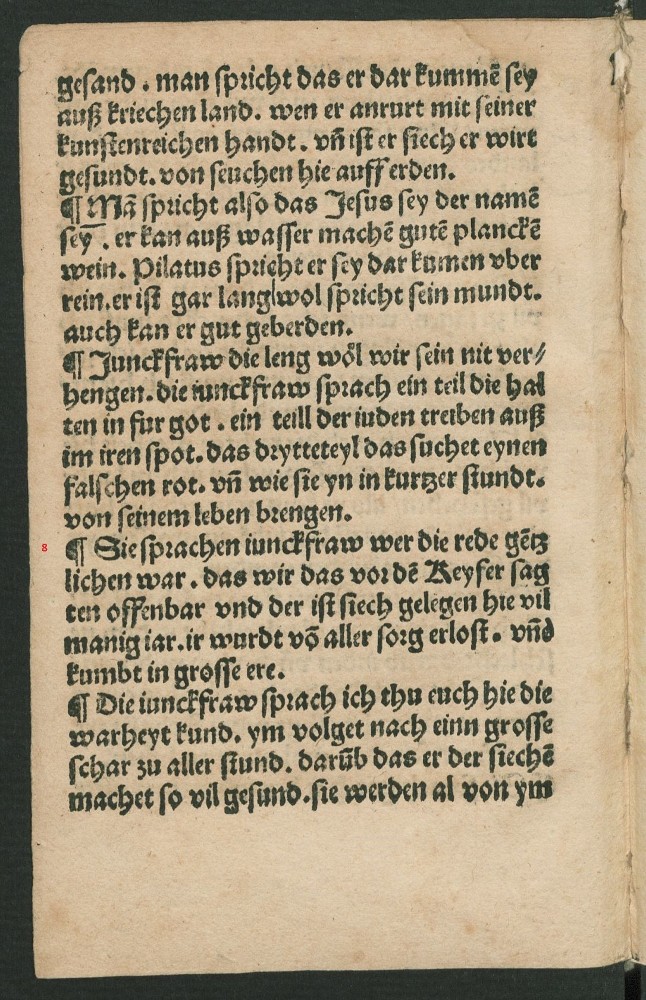 gesand . man spricht das er dar kummē sey
auß kriechen land. wen er anrurt mit seiner
kunstenreichen handt. vñ ist er siech er wirt
gesundt. von seuchen hie auff erden.
¶ Mā spricht also das Jesus sey der namē
sey . er kan auß wasser machē gutē planckē
wein. Pilatus spricht er sey dar kumen vber
rein. er ist gar lang wol spricht sein mundt.
auch kan er gut geberden.
¶ Junckfraw die leng wöl wir sein nit ver⸗
hengen. die iunckfraw sprach ein teil die hal
ten in fur got . ein teill der iuden treiben auß
im iren spot. das drytteteyl das suchet eynen
falschen rot. vñ wie sie yn in kurtzer stundt.
von seinem leben brengen.
8 ¶ Sie sprachen iunckfraw wer die rede gētz
lichen war . das wir das vor dē Keyser sag
ten offenbar vnd der ist siech gelegen hie vil
manig iar. ir wurdt vō aller sorg erlost. vñd
kumbt in grosse ere.
¶ Die iunckfraw sprach ich thu euch hie die
warheyt kund. ym volget nach einn grosse
schar zu aller stund. darūb das er der siechē
machet so vil gesund. sie werden al von ym